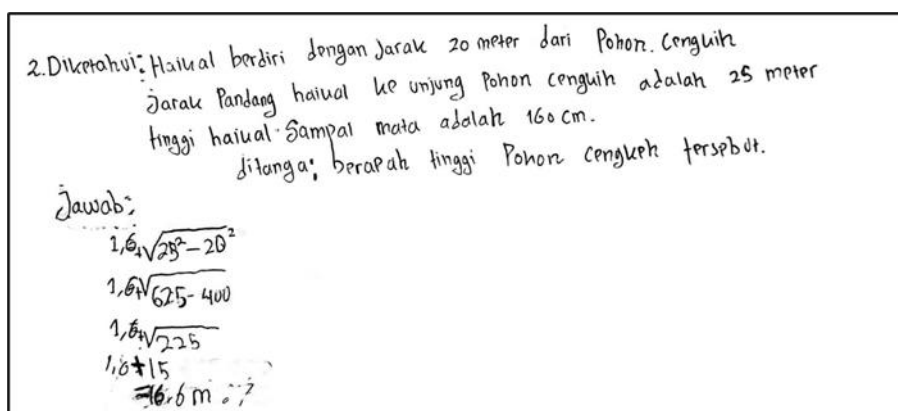 2. Diketahui: Haikal berdiri dengan Jarak 20 meter dari Pohon. Cengkih
Jarak Pandang haikal ke unjung Pohon cengkih adalah 25 meter
tinggi haikal Sampai mata adalah 160 cm.
ditanga: berapah tinggi Pohon cengkeh tersebut.
Jawab:
1,6+√25²-20²
1,6+√625-400
1,6+√225
1,6+15
=16,6 m